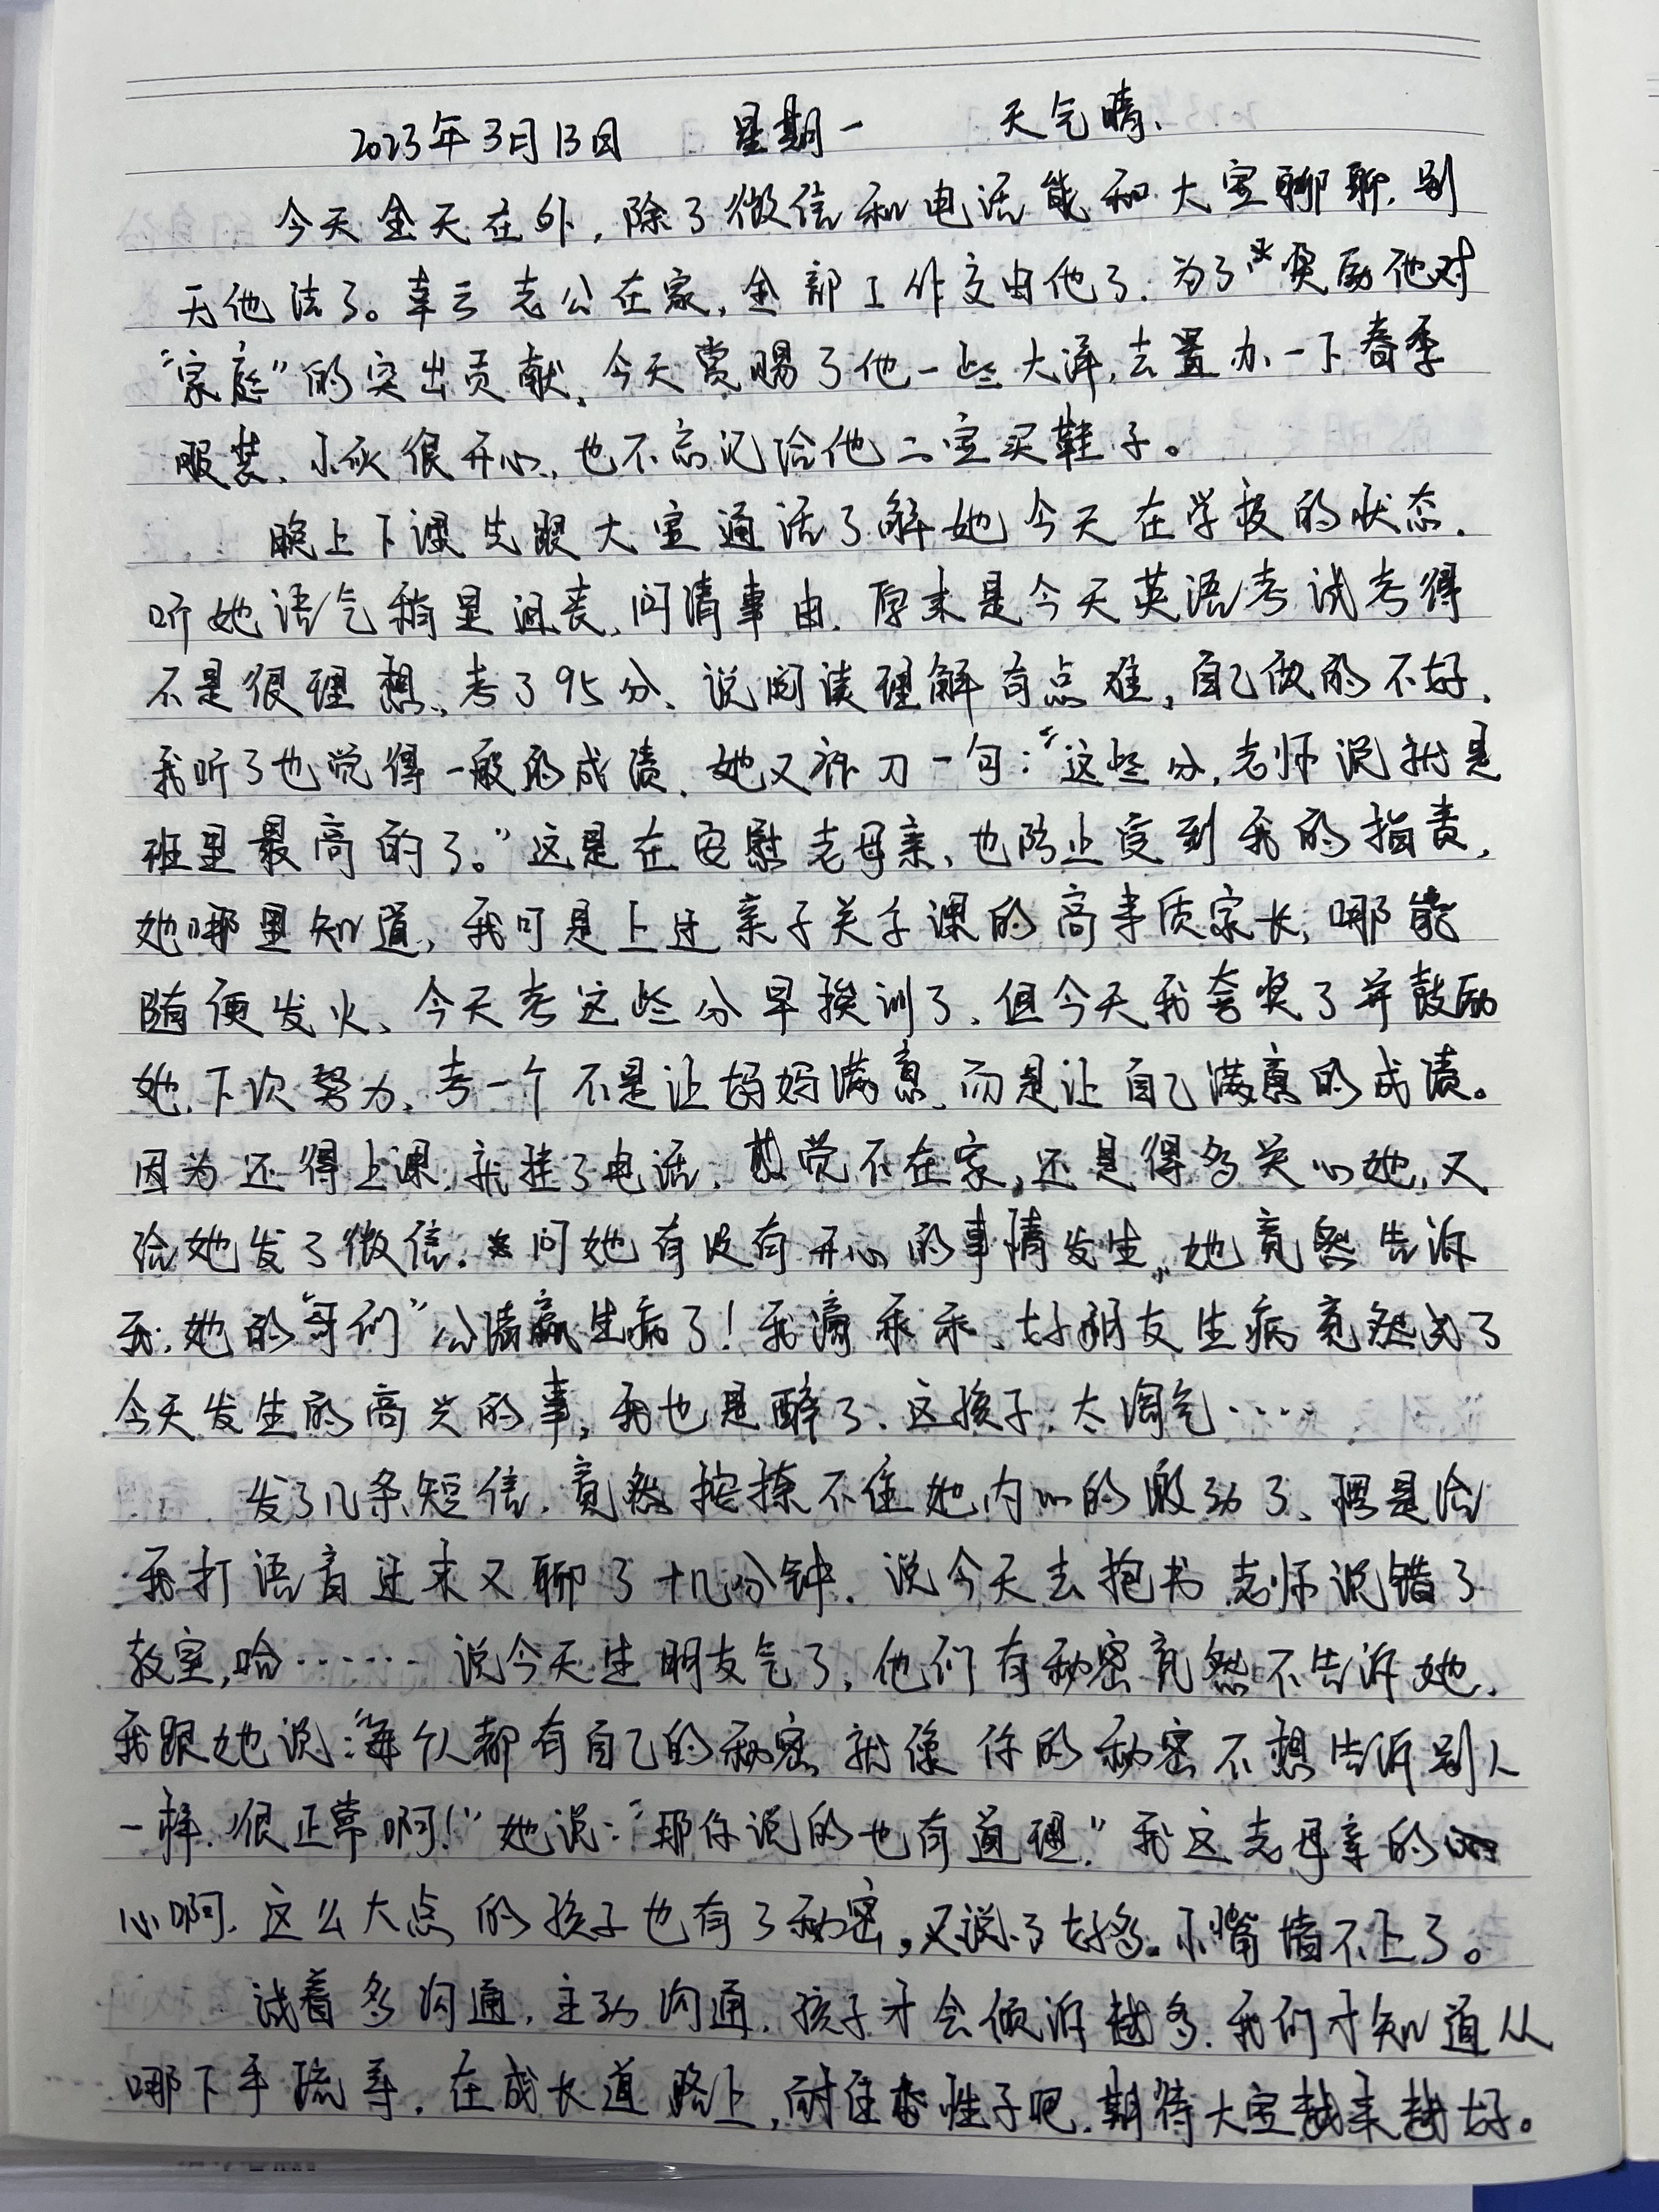 2023年3月13日 星期一 天气晴.
今天全天在外,除了微信和电话能和大宝聊聊,别
无他法了。幸亏老公在家,全部工作交由他了.为了奖励他对
“家庭”的突出贡献,今天赏赐了他一些大洋,去置办一下春季
服装,小伙很开心,也不忘记给他二宝买鞋子。
晚上下课先跟大宝通话了解她今天在学校的状态.
听她语气稍显沮丧,问清事由.原来是今天英语考试考得
不是很理想,考了95分、说阅读理解有点难,自己做的不好.
我听了也觉得一般的成绩.她又补刀一句:“这些分,老师说就是
班里最高的了。”这是在安慰老母亲,也防止受到我的指责,
她哪里知道,我可是上过亲子关系课的高素质家长,哪能
随便发火、今天考这些分早挨训了、但今天我夸奖了并鼓励
她.下次努力、考一个不是让妈妈满意,而是让自己满意的成绩。
因为还得上课,就挂了电话,感觉不在家,还是得多关心她,又
给她发了微信.问她有没有开心的事情发生,她竟然告诉
我:她的“哥们”公清赢生病了!我滴乖乖、好朋友生病竟然成了
今天发生的高兴的事,我也是醉了、这孩子.太淘气……
发了几条短信,竟然按捺不住她内心的激动了、愣是给
我打语音过来又聊了十几分钟.说今天去抱书,老师说错了
教室,哈…… 说今天生朋友气了,他们有秘密竟然不告诉她.
我跟她说:“每个人都有自己的秘密,就像你的秘密不想告诉别人
一样.很正常啊!”她说:“那你说的也有道理.”我这老母亲的
心啊.这么大点的孩子也有了秘密,又说了好多。小嘴堵不上了。
试着多沟通,主动沟通,孩子才会倾诉越多.我们才知道从
哪下手疏导.在成长道路上,耐住性子吧.期待大宝越来越好。